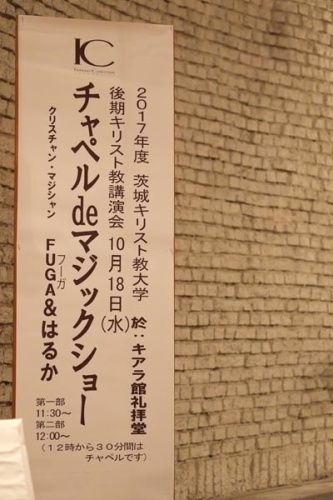 IC
2017年度 茨城キリスト教大学
後期キリスト教講演会 10月18日(水) 於:キアラ館礼拝堂
チャペルdeマジックショー
クリスチャン・マジシャン FUGA&はるか
フーガ
第一部
11:30～
第二部
12:00～
(12時から30分間は
チャペルです)